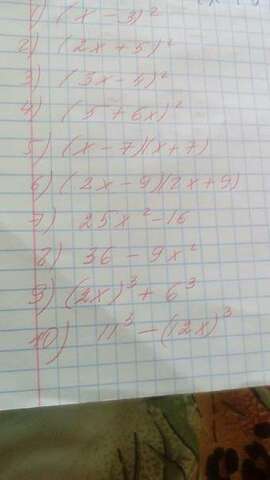 1) (x - 3)²
2) (2x + 5)²
3) (3x - 4)²
4) (5 + 6x)²
5) (x - 7)(x + 7)
6) (2x - 9)(2x + 9)
7) 25x² - 16
8) 36 - 9x²
9) (2x)³ + 6³
10) 11³ - (12x)³